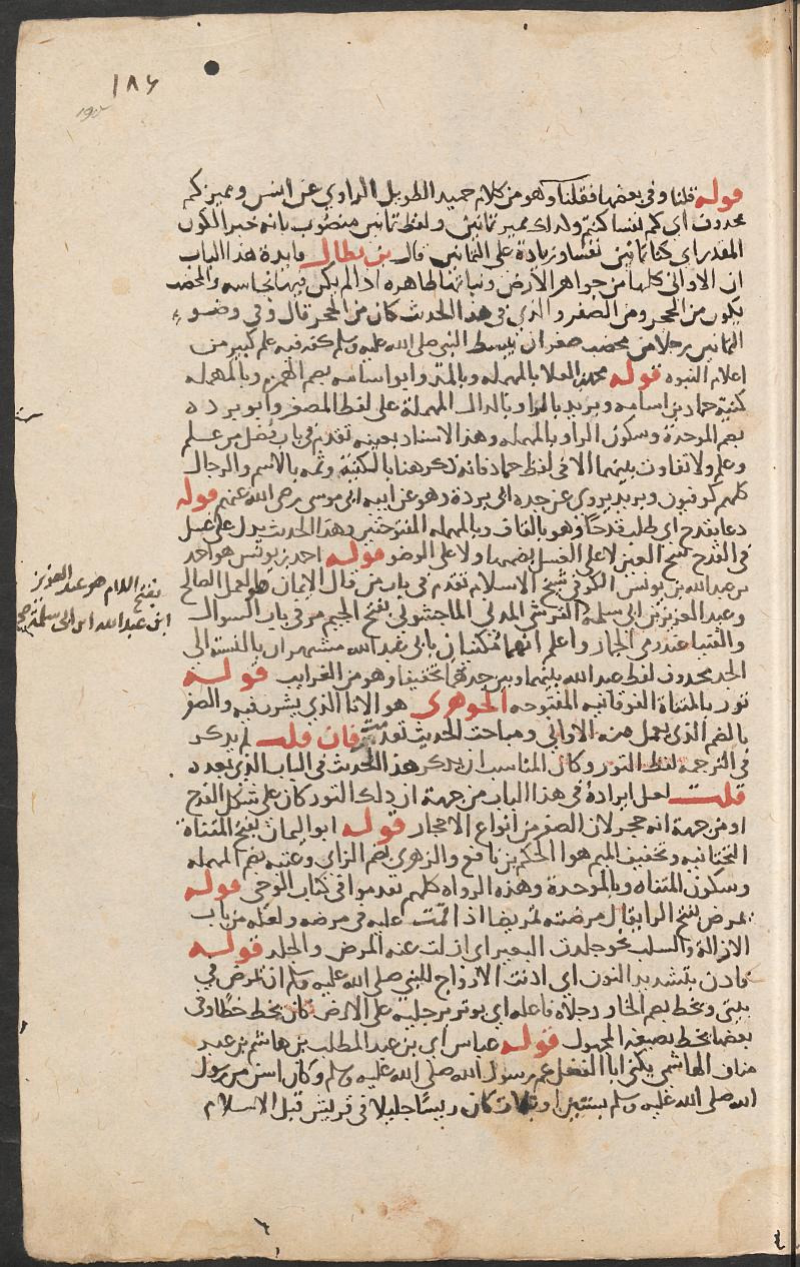 ١٨٤
195
قوله قلنا وفي بعضها فقلنا وهو من كلام حميد الطويل الراوي عن انس ومميز كم
محذوف اي كم نفسا كنتم ولذلك مميز ثمانين ولفظ ثمانين منصوب بانه خبر الكون
المقدر اي كنا ثمانين نفسا وزيادة على الثمانين قال بن بطال فايدة هذا الباب
ان الاواني كلها من جواهر الأرض ونباتها طاهره اذا لم يكن فيها نجاسه والمخضب
يكون من الحجر ومن الصفر والذي في هذا الحديث كان من الحجر قال وفي وضوء
الثمانين رجلا من مخضب صغر ان يبسط النبي صلى الله عليه وسلم كفه فيه علم كبير من
اعلام النبوه قوله محمد بن العلا بالمهمله وبالمد وابو اسامه بضم الهمزه وبالمهمله
كنية حماد بن اسامه وبريد بالراء وبالدال المهملة على لفظ المصغر وابو برده
بضم الموحدة وسكون الراء وبالمهمله وهذا الاسناد بعينه تقدم في باب فضل من علم
وعلم ولا تفاوت بينهما الا في لفظ حماد فانه ذكر هنا بالكنية وثمه بالاسم والرجال
كلهم كوفيون وبريد يروي عن جده ابي بردة وهو عن ابيه ابي موسى رضي الله عنهم قوله
دعا بقدح اي طلب قدحا وهو بالقاف وبالمهمله المفتوحتين وهذا الحديث يدل على غسل
في القدح بفتح الغين لا على الغسل بضمها ولا على الوضو قوله احمد بن يونس هو احمد
بن عبد الله بن يونس الكوفي شيخ الاسلام تقدم في باب من قال الإيمان هو العمل الصالح
وعبد العزيز بن ابي سلمة القرشي المدني الماجشوني بفتح الجيم مر في باب السوال
والفتيا عند رمي الجمار واعلم انهما مكنيان بابي عبد الله مشتهران بالنسبة الى
الجد محذوف لفظ عبد الله بينهما وبين جديهما تخفيفا وهو من الغرايب قوله
تور بالمثناة الفوقانيه المفتوحه الجوهري هو الانا الذي يشرب فيه والصفر
بالضم الذي يعمل منه الاواني ومباحث الحديث تقدمت فان قلت لم يذكر
في الترجمة لفظ التور وكان المناسب ان يذكر هذا الحديث في الباب الذي بعده
قلت لعل ايراده في هذا الباب من جهة ان ذلك التور كان على شكل القدح
او من جهة انه حجر لان الصفر من انواع الاحجار قوله ابو اليمان بفتح المثناة
التحتانيه وتخفيف الميم هو الحكم بن نافع والزهري بضم الزاي وعتبه بضم المهمله
وسكون المثناه وبالموحدة وهذه الرواه كلهم تقدموا في كتاب الوحي قوله
يمرض بفتح الرا يقال مرضته تمريضا اذا اقمت عليه في مرضه ولعله من باب
الازالة والسلب نحو جلدت البعير اي ازلت عنه المرض والجلد قوله
فاذن بتشديد النون اي اذنت الازواج للنبي صلى الله عليه وسلم ان تمرض في
بيتي ويخط بضم الخاء ورجلاه فاعله اي يوثر برجليه على الارض كان يخط خطا وفي
بعضها يخط بصيغة المجهول قوله عباس اي بن عبد المطلب بن هاشم بن عبد
مناف الهاشمي يكنى ابا الفضل عم رسول الله صلى الله عليه وسلم وكان اسن من رسول
الله صلى الله عليه وسلم بسنتين او ثلاث كان رييسا جليلا في قريش قبل الاسلام
بفتح اللام هو عبد العزيز
ابن عبد الله ابن ابي سلمة صح